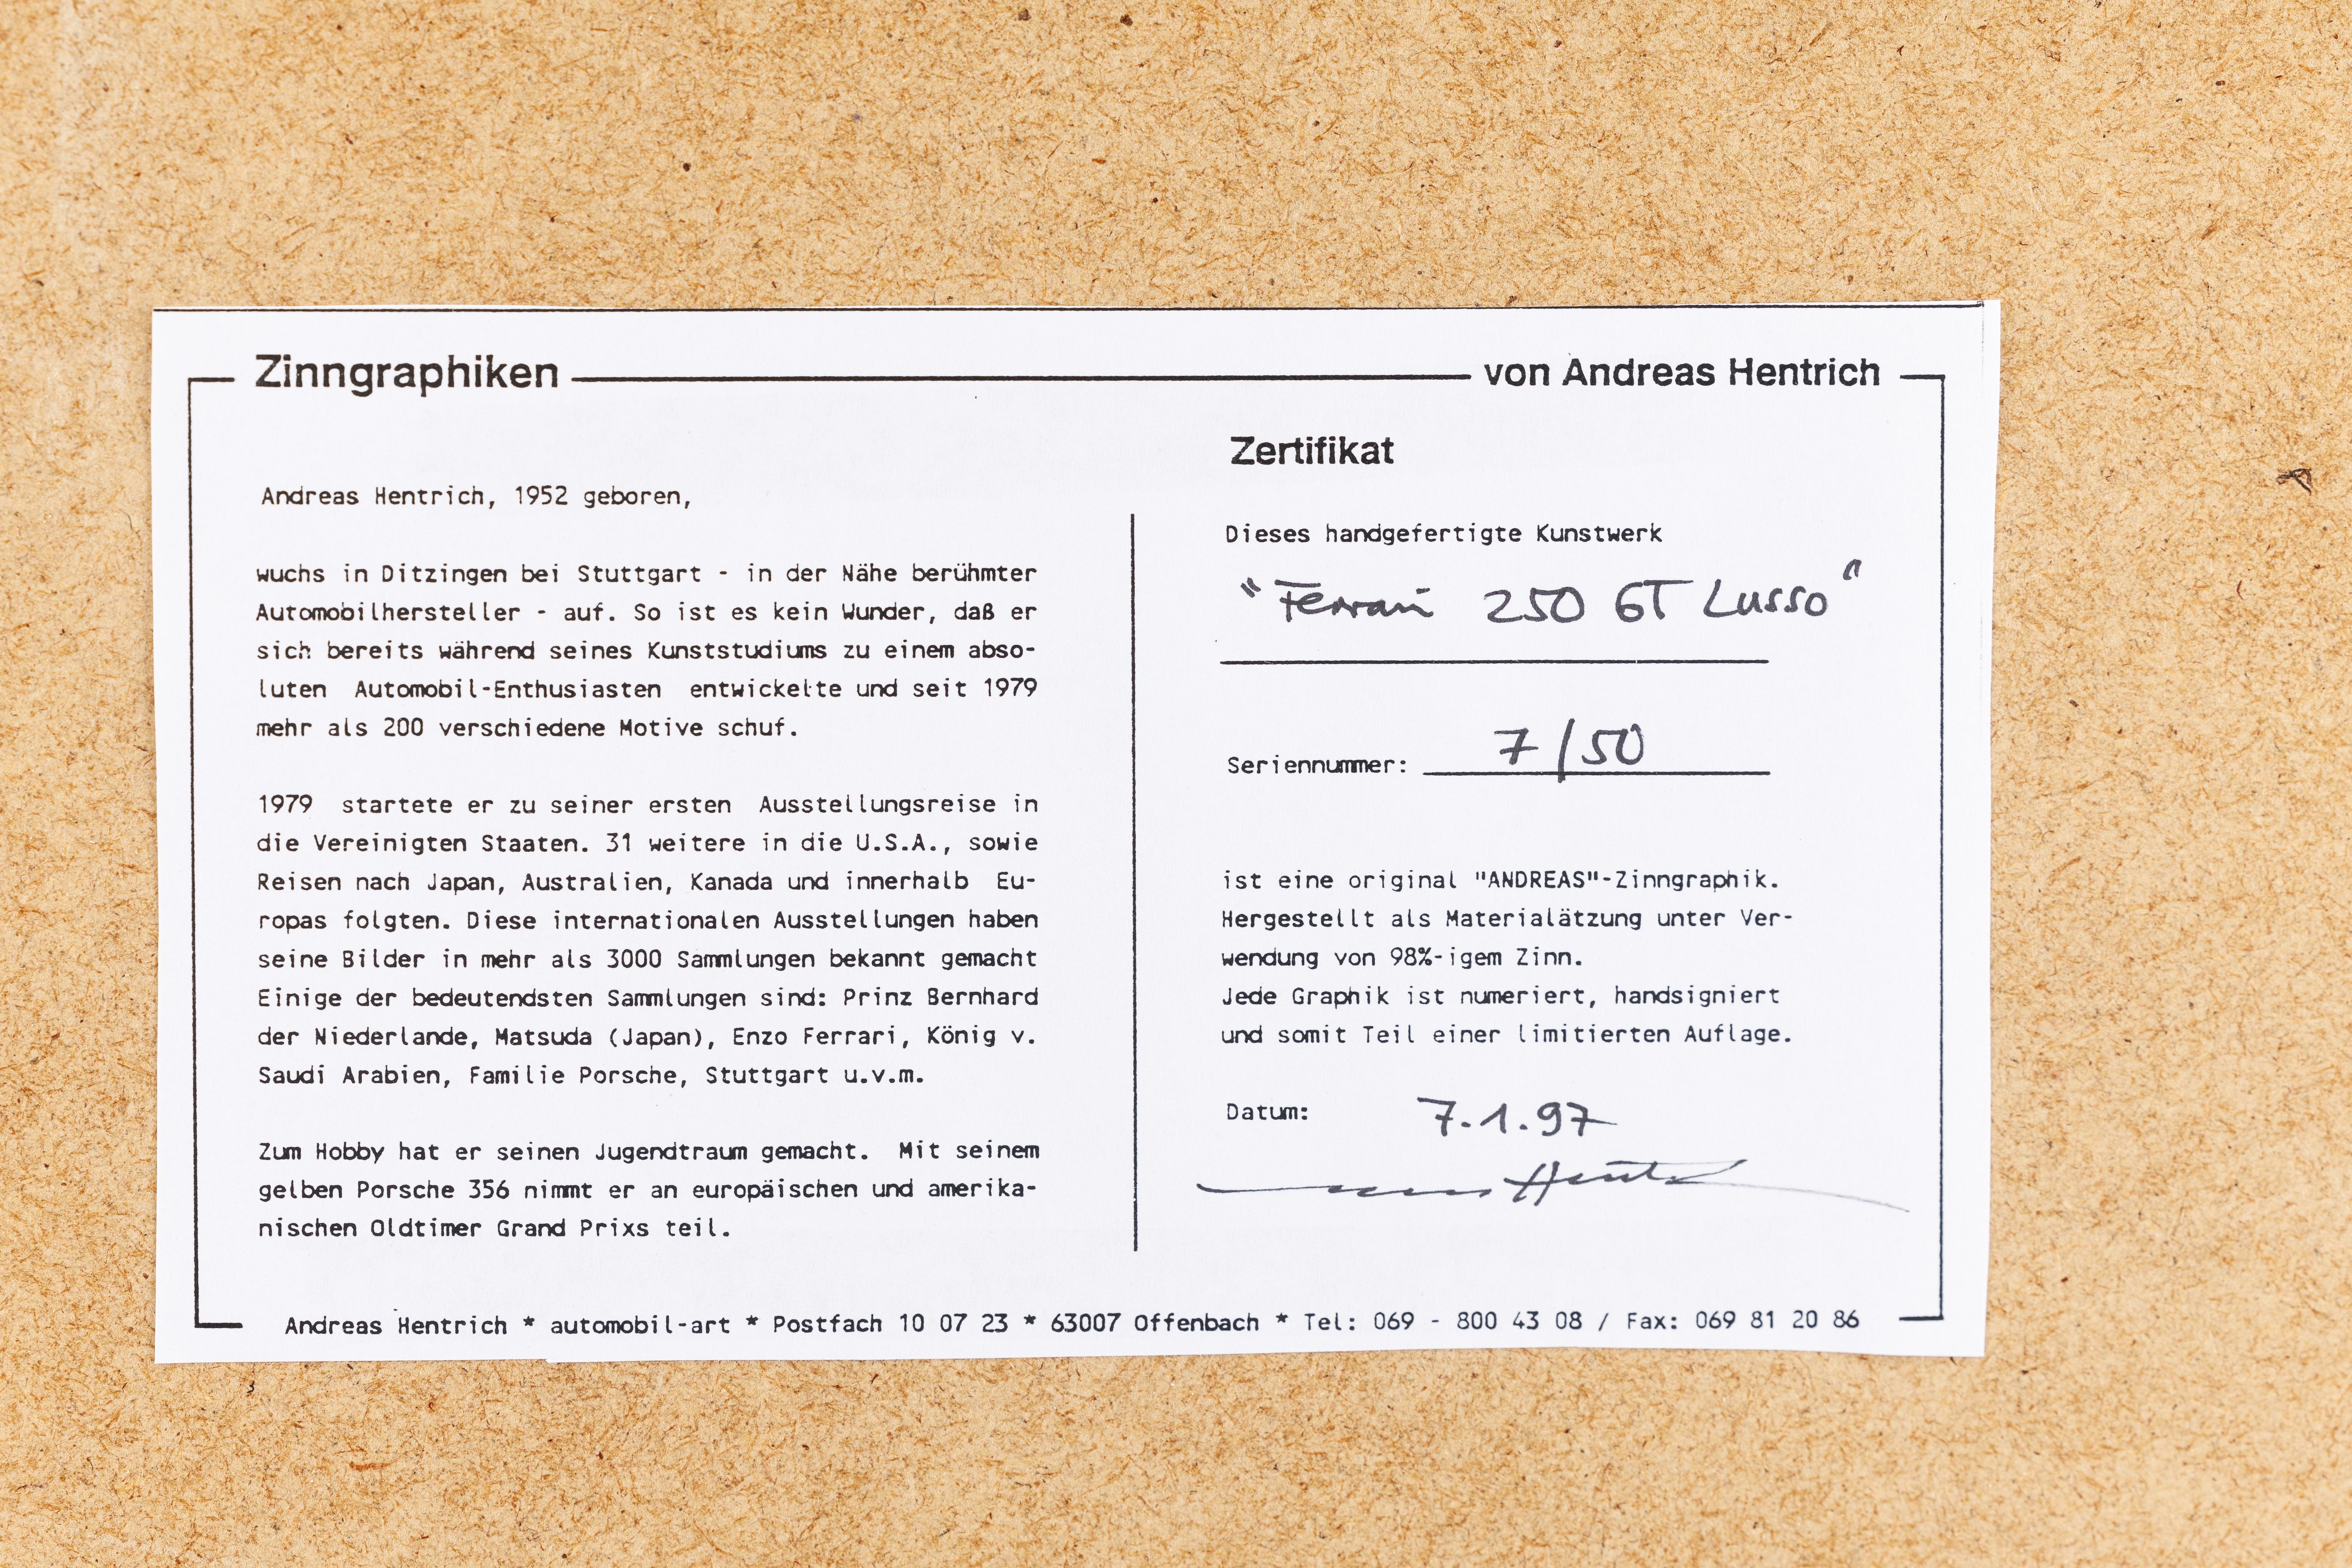 Zinngraphiken
von Andreas Hentrich
Andreas Hentrich, 1952 geboren,
wuchs in Ditzingen bei Stuttgart - in der Nähe berühmter
Automobilhersteller - auf. So ist es kein Wunder, daß er
sich bereits während seines Kunststudiums zu einem abso-
luten Automobil-Enthusiasten entwickelte und seit 1979
mehr als 200 verschiedene Motive schuf.
1979 startete er zu seiner ersten Ausstellungsreise in
die Vereinigten Staaten. 31 weitere in die U.S.A., sowie
Reisen nach Japan, Australien, Kanada und innerhalb Eu-
ropas folgten. Diese internationalen Ausstellungen haben
seine Bilder in mehr als 3000 Sammlungen bekannt gemacht
Einige der bedeutendsten Sammlungen sind: Prinz Bernhard
der Niederlande, Matsuda (Japan), Enzo Ferrari, König v.
Saudi Arabien, Familie Porsche, Stuttgart u.v.m.
Zum Hobby hat er seinen Jugendtraum gemacht. Mit seinem
gelben Porsche 356 nimmt er an europäischen und amerika-
nischen Oldtimer Grand Prixs teil.
Zertifikat
Dieses handgefertigte Kunstwerk
"Ferrari 250 GT Lusso"
Seriennummer: 7/50
ist eine original "ANDREAS"-Zinngraphik.
Hergestellt als Materialätzung unter Ver-
wendung von 98%-igem Zinn.
Jede Graphik ist numeriert, handsigniert
und somit Teil einer limitierten Auflage.
Datum: 7.1.97
Andreas Hentrich * automobil-art * Postfach 10 07 23 * 63007 Offenbach * Tel: 069 - 800 43 08 / Fax: 069 81 20 86